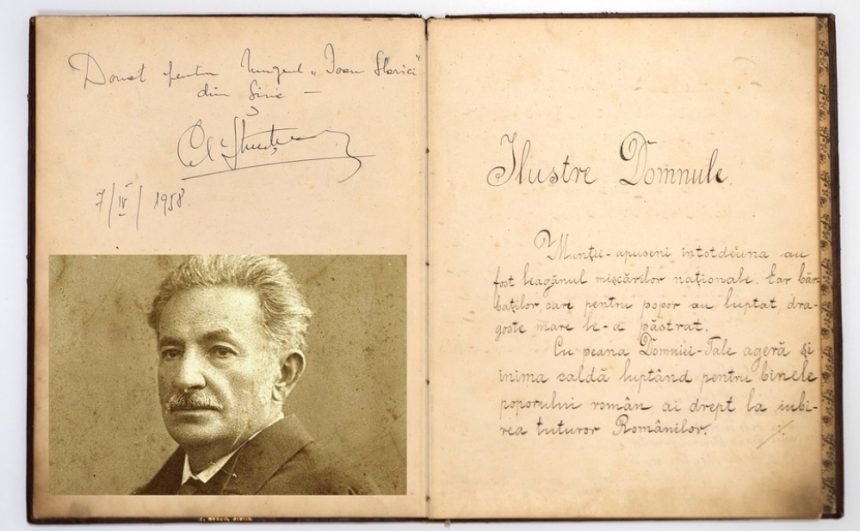 Donat pentru Muzeul „Ioan Slavici"
din Șiria —
7/IV/1958
Ilustre Domnule
Munții-apuseni întotdéuna au
fost leagănul mișcărilor naționale. Ear băr-
baților, cari pentru popor au luptat, dra-
goste mare le-a păstrat.
Cu peana Domniei-Tale ageră și
inima caldă luptând pentru binele
poporului român, ai drept la iubi-
rea tuturor Românilor.